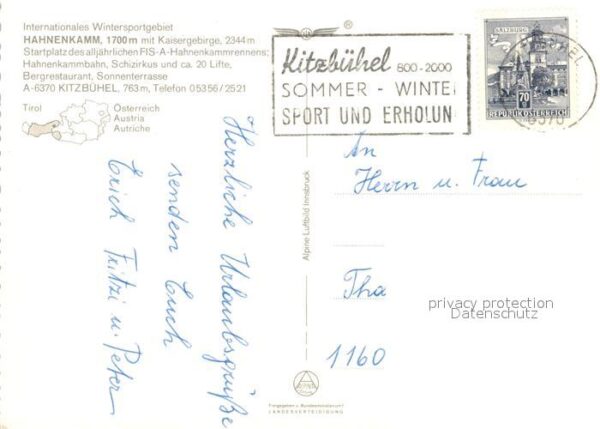 Internationales Wintersportgebiet
HAHNENKAMM, 1700 m mit Kaisergebirge, 2344 m
Startplatz des alljährlichen FIS-A-Hahnenkammrennens;
Hahnenkammbahn, Schizirkus und ca. 20 Lifte,
Bergrestaurant, Sonnenterrasse
A-6370 KITZBÜHEL, 763 m, Telefon 05356/2521
Tirol
Österreich
Austria
Autriche
Herzliche Urlaubsgrüße
senden Euch
Erich Fritzi u. Peter
Alpine Luftbild Innsbruck
Freigegeben v. Bundesministerium f.
LANDESVERTEIDIGUNG
®
Kitzbühel 800-2000
SOMMER - WINTE
SPORT UND ERHOLUN
SALZBURG
70
REPUBLIK ÖSTERREICH
6370
An
Herrn u. Frau
Tha
1160
privacy protection
Datenschutz